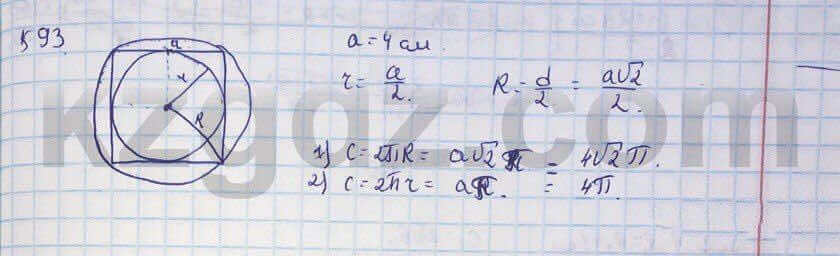 593
a = 4 см.
a
r
R
r = a/2.
R = d/2 = a√2/2.
1) C = 2πR = a√2π = 4√2π.
2) C = 2πr = aπ. = 4π.
kzgdz.com